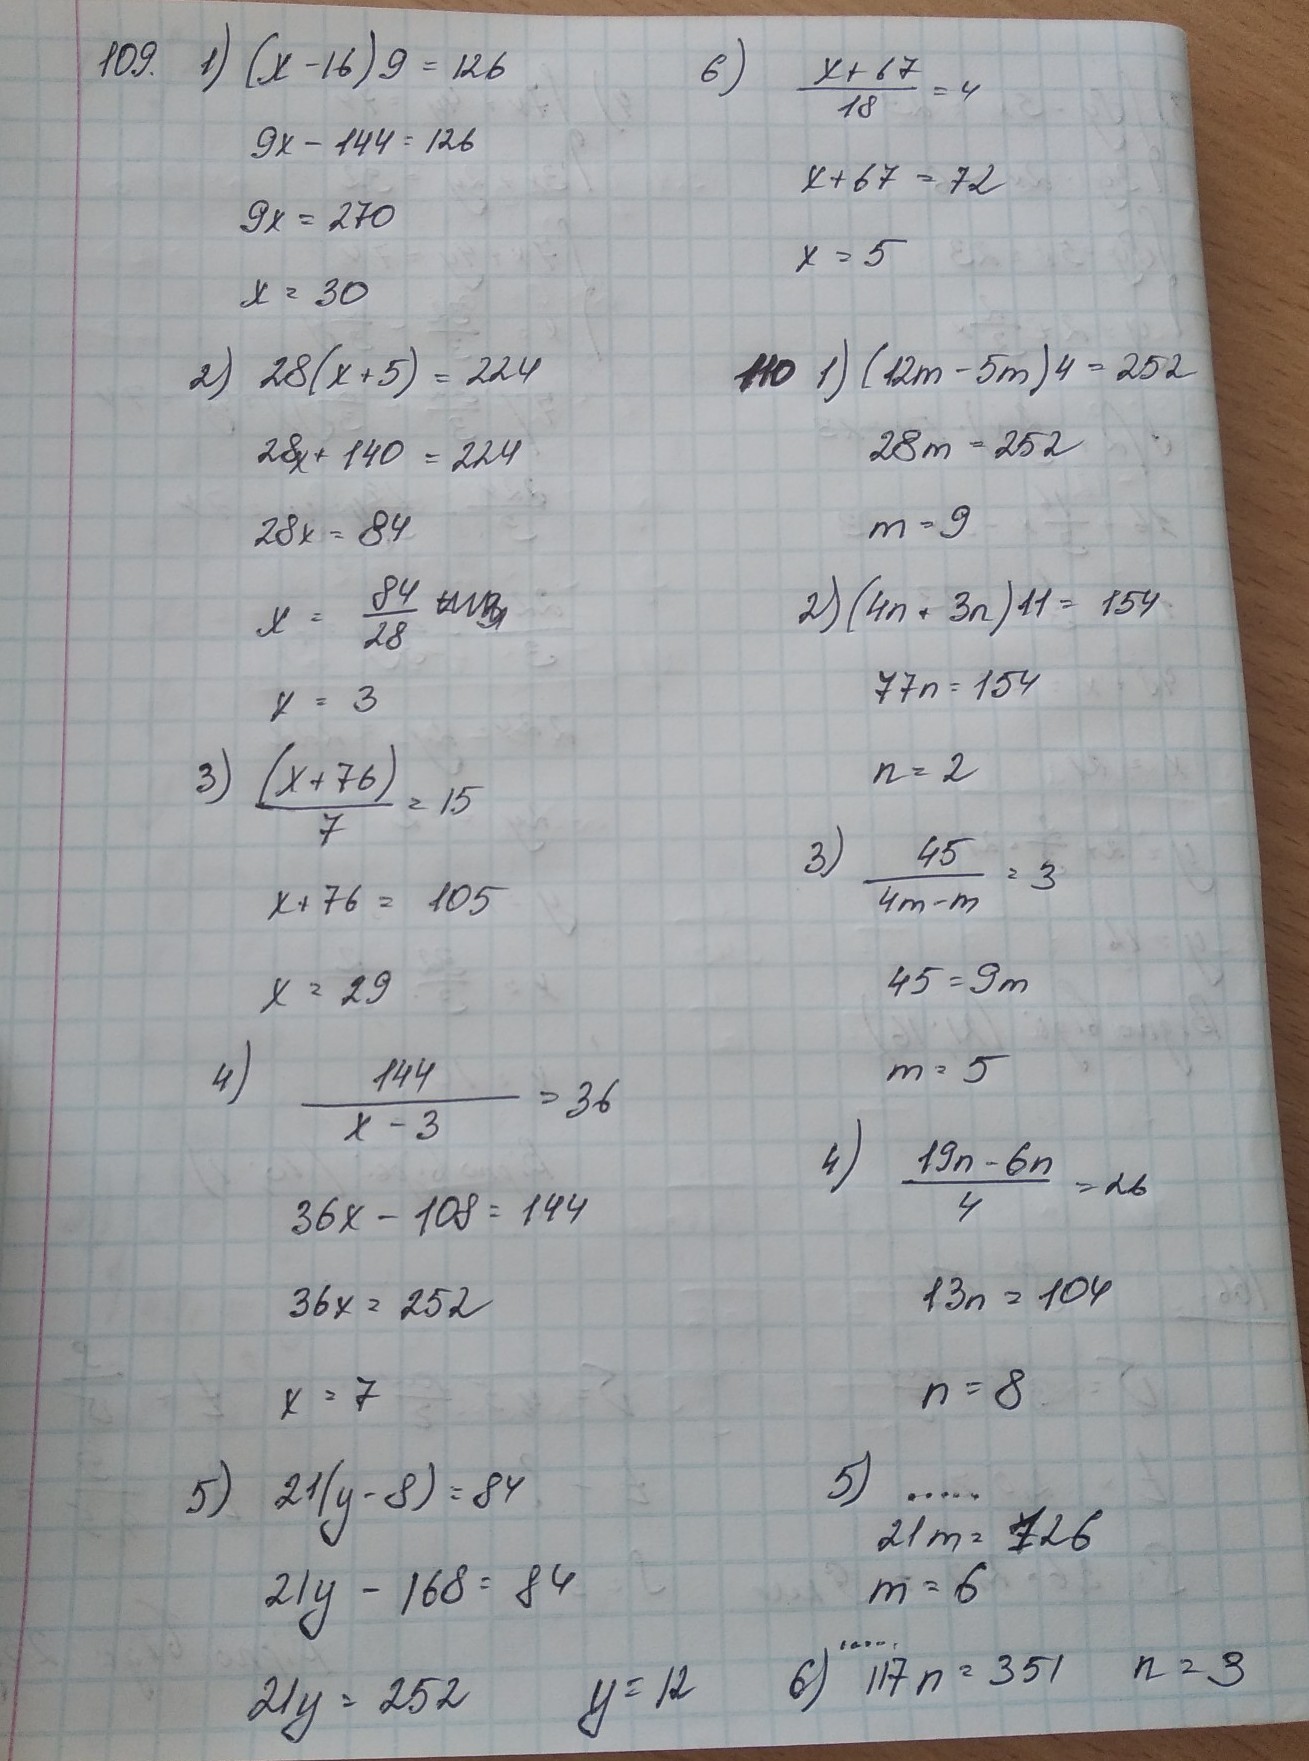 109. 1) (x - 16) 9 = 126
9x - 144 = 126
9x = 270
x = 30
2) 28(x+5) = 224
28x + 140 = 224
28x = 84
x = 84/28
x = 3
3) (x+76)/7 = 15
x + 76 = 105
x = 29
4) 144/(x - 3) = 36
36x - 108 = 144
36x = 252
x = 7
5) 21(y - 8) = 84
21y - 168 = 84
21y = 252 y = 12
6) (x + 67)/18 = 4
x + 67 = 72
x = 5
110 1) (12m - 5m) 4 = 252
28m = 252
m = 9
2) (4n + 3n) 11 = 154
77n = 154
n = 2
3) 45/(4m - m) = 3
45 = 9m
m = 5
4) (19n - 6n)/4 = 26
13n = 104
n = 8
5) .....
21m = 126
m = 6
6) ..... 117n = 351 n = 3